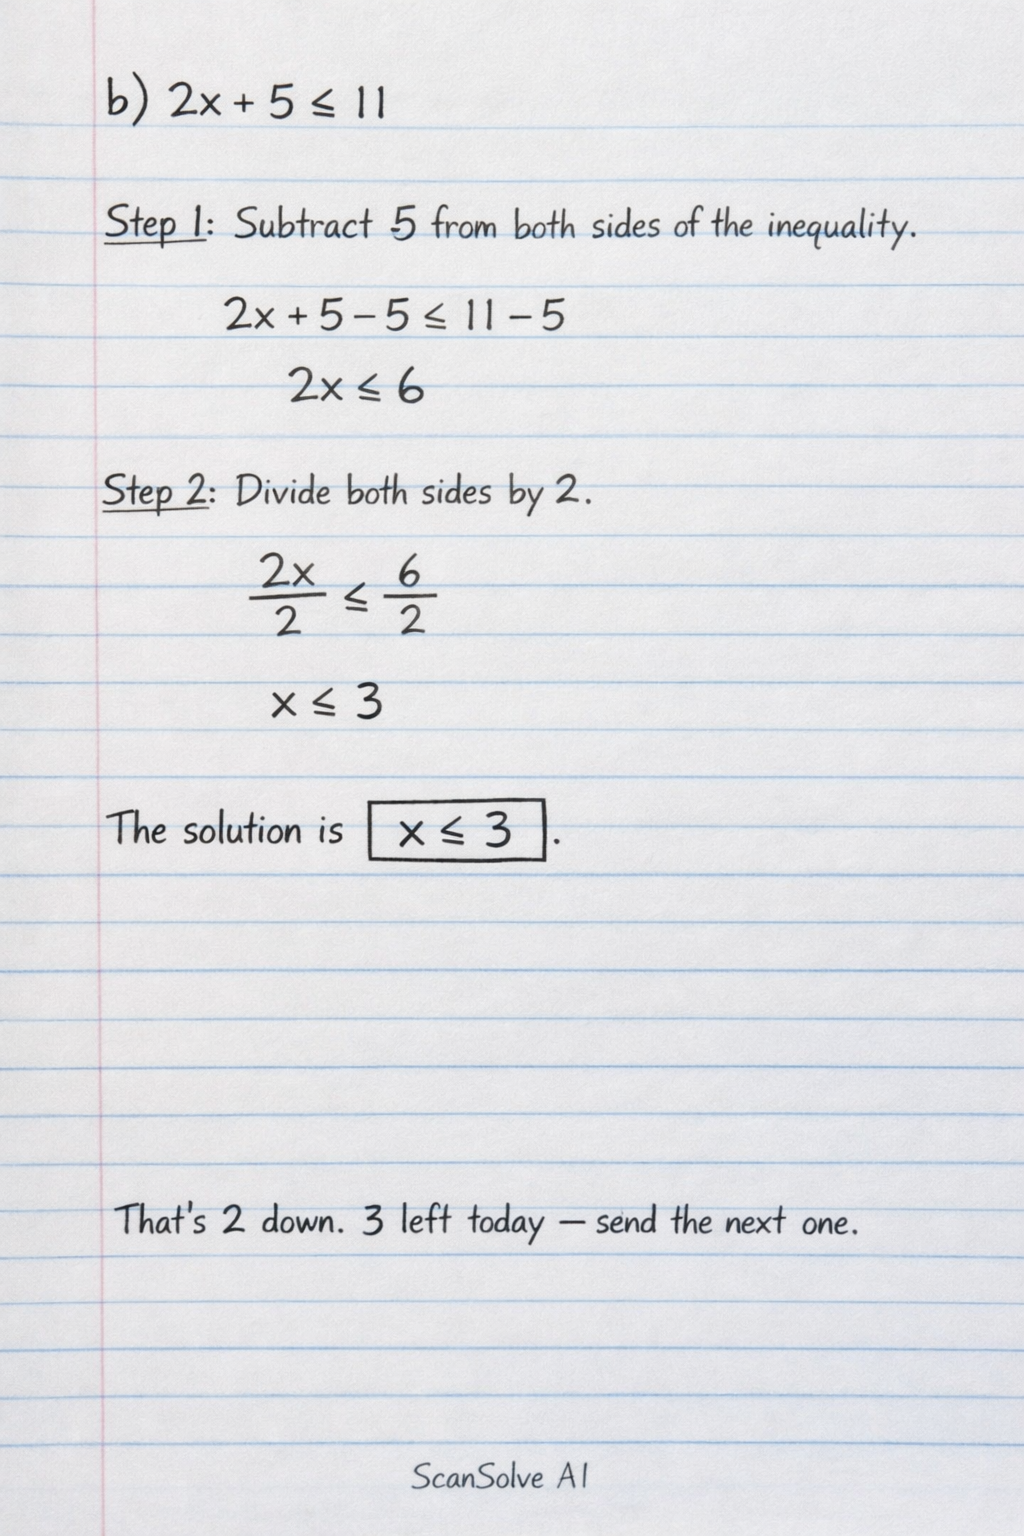 b) 2x + 5 ≤ 11
Step 1: Subtract 5 from both sides of the inequality.
2x + 5 − 5 ≤ 11 − 5
2x ≤ 6
Step 2: Divide both sides by 2.
2x/2 ≤ 6/2
x ≤ 3
The solution is x ≤ 3.
That's 2 down. 3 left today — send the next one.
ScanSolve AI